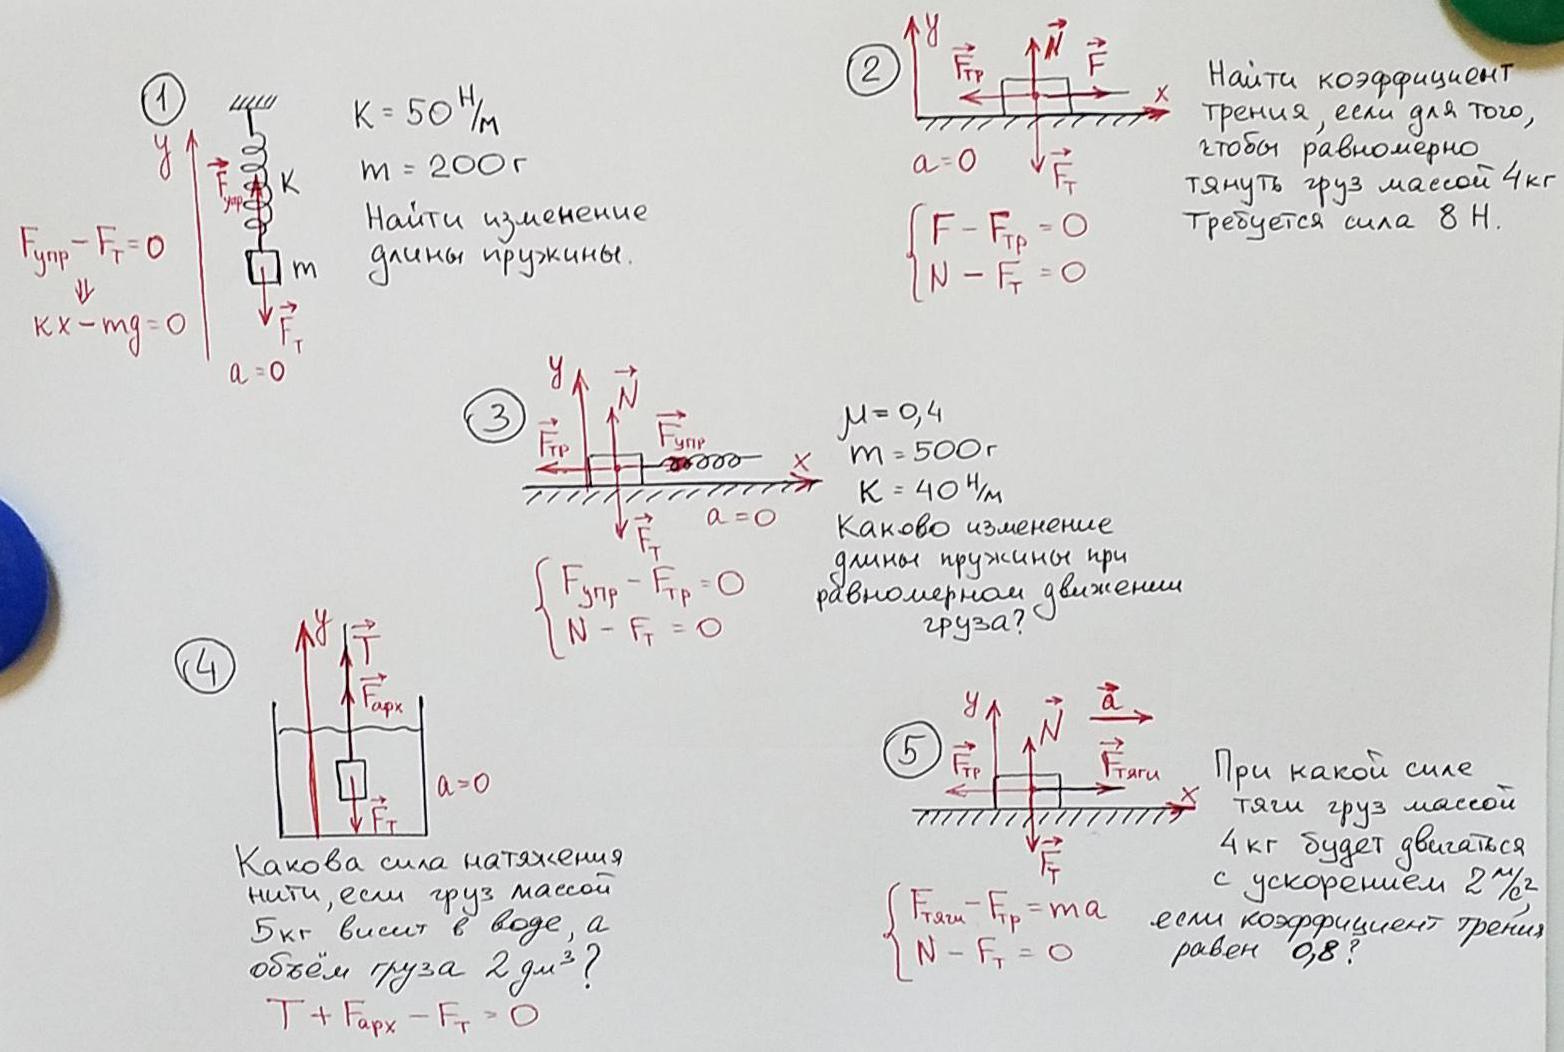 1
y
F упр
K
m
F т
a = 0
Fупр - Fт = 0
⇓
кx - mg = 0
K = 50 Н/м
m = 200г
Найти изменение
длины пружины.
2
y
Fтр
N
F
x
Fт
a = 0
F - Fтр = 0
N - Fт = 0
Найти коэффициент
трения, если для того,
чтобы равномерно
тянуть груз массой 4кг
требуется сила 8 Н.
3
y
N
Fтр
Fупр
x
Fт
a = 0
Fупр - Fтр = 0
N - Fт = 0
μ = 0,4
m = 500г
K = 40 Н/м
Каково изменение
длины пружины при
равномерном движении
груза?
4
y
T
Fарх
Fт
a = 0
Какова сила натяжения
нити, если груз массой
5кг висит в воде, а
объём груза 2 дм³?
T + Fарх - Fт = 0
5
y
N
a
Fтр
Fтяги
x
Fт
Fтяги - Fтр = ma
N - Fт = 0
При какой силе
тяги груз массой
4кг будет двигаться
с ускорением 2 м/с²,
если коэффициент трения
равен 0,8?